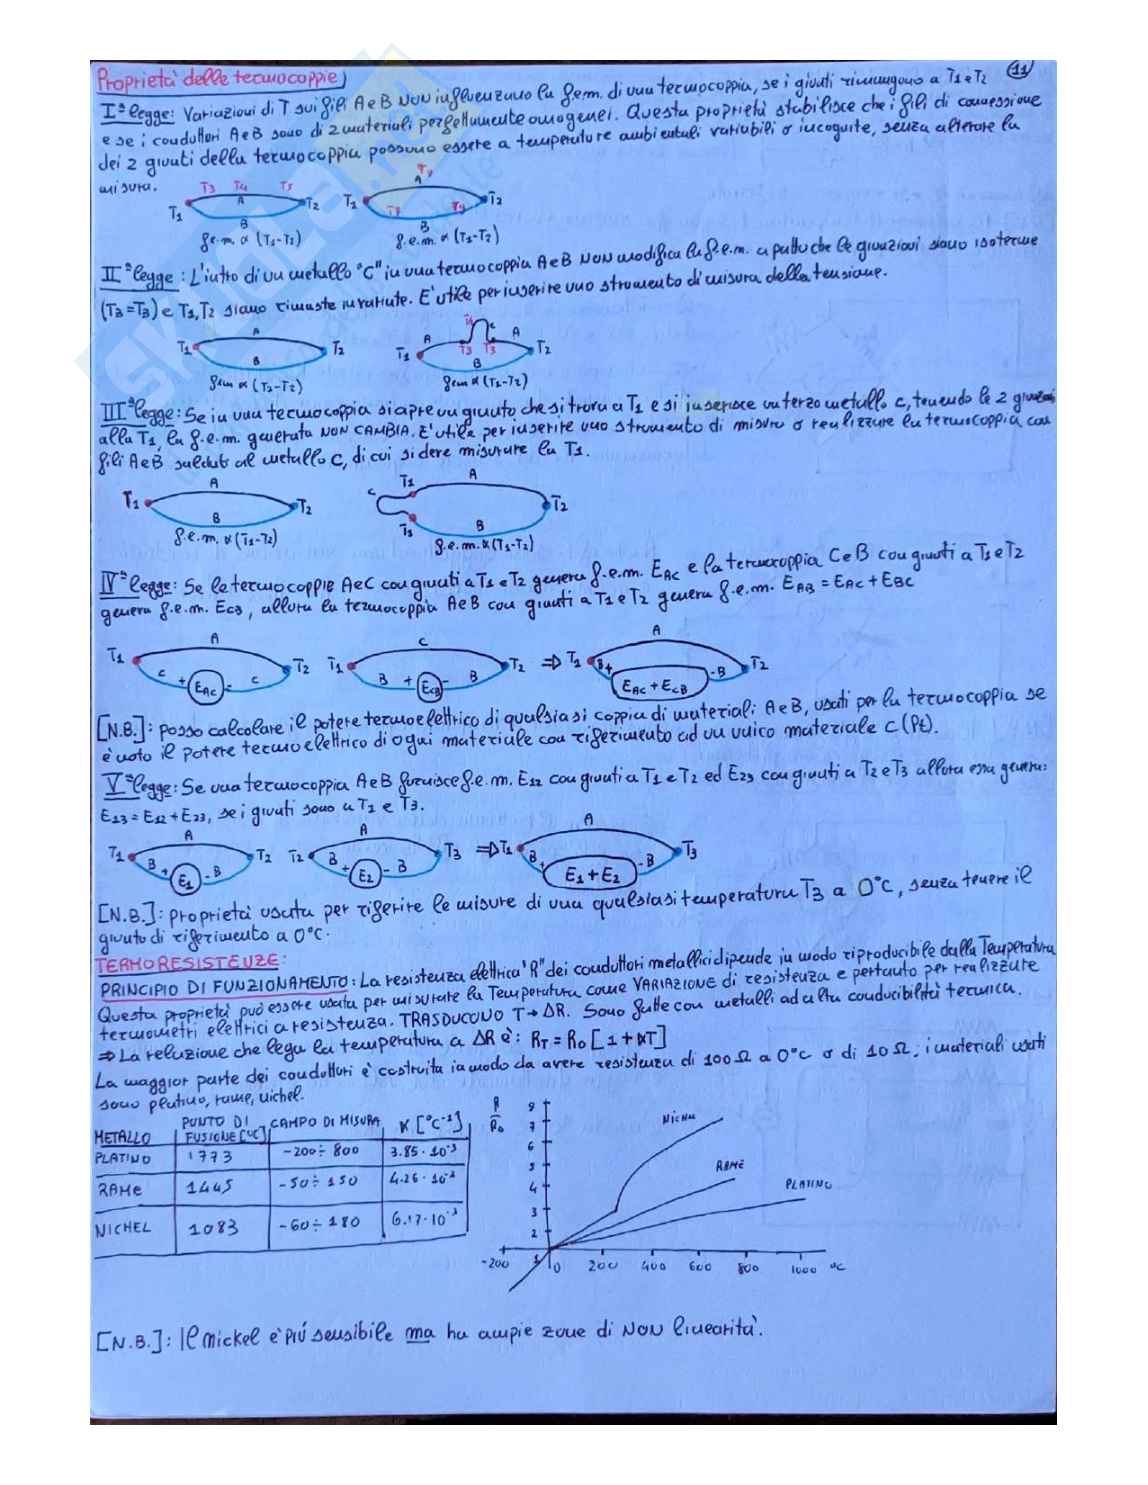 Proprietà delle termocoppie) 11
I^a legge: Variazioni di T sui fili A e B NON influenzano la f.e.m. di una termocoppia, se i giunti rimangono a T1 e T2
e se i conduttori A e B sono di 2 materiali perfettamente omogenei. Questa proprietà stabilisce che i fili di connessione
dei 2 giunti della termocoppia possono essere a temperature ambientali variabili o incognite, senza alterare la
misura.
T3 T4 T5
T1 A T2
B
f.e.m. α (T1-T2)
T1 A T2
B
f.e.m. α (T1-T2)
II^a legge: L'intro di un metallo "C" in una termocoppia A e B NON modifica la f.e.m. a patto che le giunzioni siano isoterme
(T3=T3) e T1,T2 siano rimaste invariate. E' utile per inserire uno strumento di misura della tensione.
A
T1 T2
B
fem α (T1-T2)
A C A
T1 T3 T3 T2
B
fem α (T1-T2)
III^a legge: Se in una termocoppia si apre un giunto che si trova a T1 e si inserisce un terzo metallo C, tenendo le 2 giunzioni
alla T1, la f.e.m. generata NON CAMBIA. E' utile per inserire uno strumento di misura o realizzare la termocoppia con
fili A e B saldati al metallo C, di cui si deve misurare la T1.
A
T1 T2
B
f.e.m. α (T1-T2)
T1 A
C T2
T1 B
f.e.m. α (T1-T2)
IV^a legge: Se le termocoppie A e C con giunti a T1 e T2 genera f.e.m. EAC e la termocoppia C e B con giunti a T1 e T2
genera f.e.m. ECB, allora la termocoppia A e B con giunti a T1 e T2 genera f.e.m. EAB = EAC + EBC
A C A
T1 T2 T1 T2 ⇒ T1 T2
C + EAC - C B + ECB - B B + EAC + ECB - B
[N.B.]: posso calcolare il potere termoelettrico di qualsiasi coppia di materiali A e B, usati per la termocoppia se
è noto il potere termoelettrico di ogni materiale con riferimento ad un unico materiale C (Pt).
V^a legge: Se una termocoppia A e B fornisce f.e.m. E12 con giunti a T1 e T2 ed E23 con giunti a T2 e T3 allora essa genera:
E13 = E12 + E23, se i giunti sono a T1 e T3.
A A A
T1 T2 T2 T3 ⇒ T1 T3
B + E1 - B B + E2 - B B + E1 + E2 - B
[N.B.]: proprietà usata per riferire le misure di una qualsiasi temperatura T3 a 0°C, senza tenere il
giunto di riferimento a 0°C.
TERMORESISTENZE:
PRINCIPIO DI FUNZIONAMENTO: La resistenza elettrica "R" dei conduttori metallici dipende in modo riproducibile dalla Temperatura
Questa proprietà può essere usata per misurare la Temperatura come VARIAZIONE di resistenza e pertanto per realizzare
termometri elettrici a resistenza. TRASDUCONO T → ΔR. Sono fatte con metalli ad alta conducibilità termica.
⇒ La relazione che lega la temperatura a ΔR è: RT = R0 [1 + αT]
La maggior parte dei conduttori è costruita in modo da avere resistenza di 100Ω a 0°C o di 10Ω; i materiali usati
sono platino, rame, nichel.
METALLO PUNTO DI FUSIONE [°C] CAMPO DI MISURA K [°C^-1]
PLATINO 1773 -200÷800 3.85·10^-3
RAME 1445 -50÷150 4.26·10^-3
NICHEL 1083 -60÷180 6.17·10^-3
R/R0
9
7
6
5
4
3
2
1
NICHEL
RAME
PLATINO
-200 0 200 400 600 800 1000 °C
[N.B.]: Il nickel è più sensibile ma ha ampie zone di NON linearità.